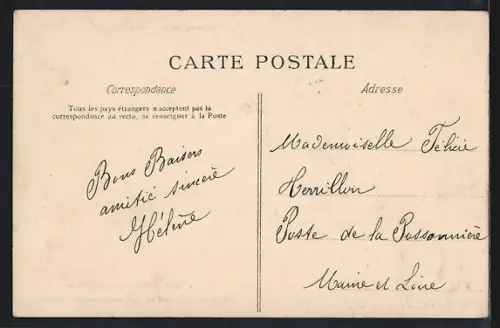 CARTE POSTALE
Correspondance
Tous les pays étrangers n'acceptent pas la
correspondance au recto, se renseigner à la Poste
Bons Baisers
amitié sincère
Hélène
Adresse
Mademoiselle Félicie
Herrillon
Poste de la Possonnière
Maine et Loire